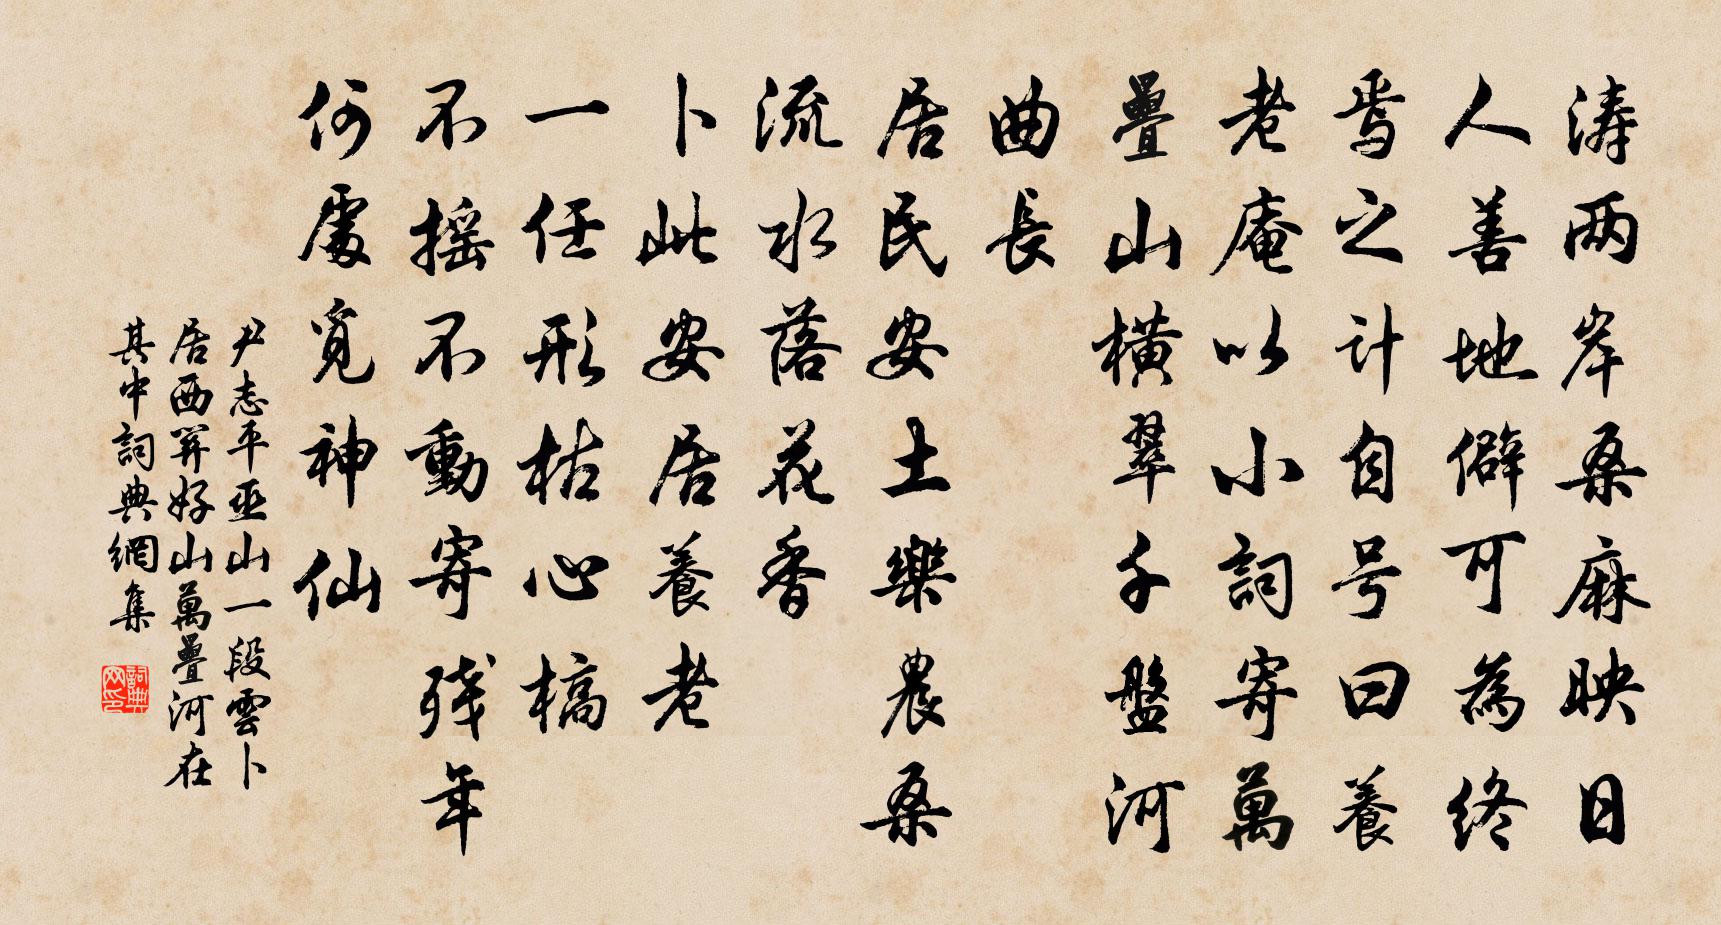 涛两岸桑麻映日
人善地僻可為终
焉之计自号曰養
老庵以小詞寄萬
疊山橫翠千盤河
曲長
居民安土樂農桑
流水落花香
卜此安居養老
一任形枯心槁
不摇不動寄残年
何處覓神仙
尹志平巫山一段雲卜
居西笄好山萬疊河在
其中詞典網集
詞典网印